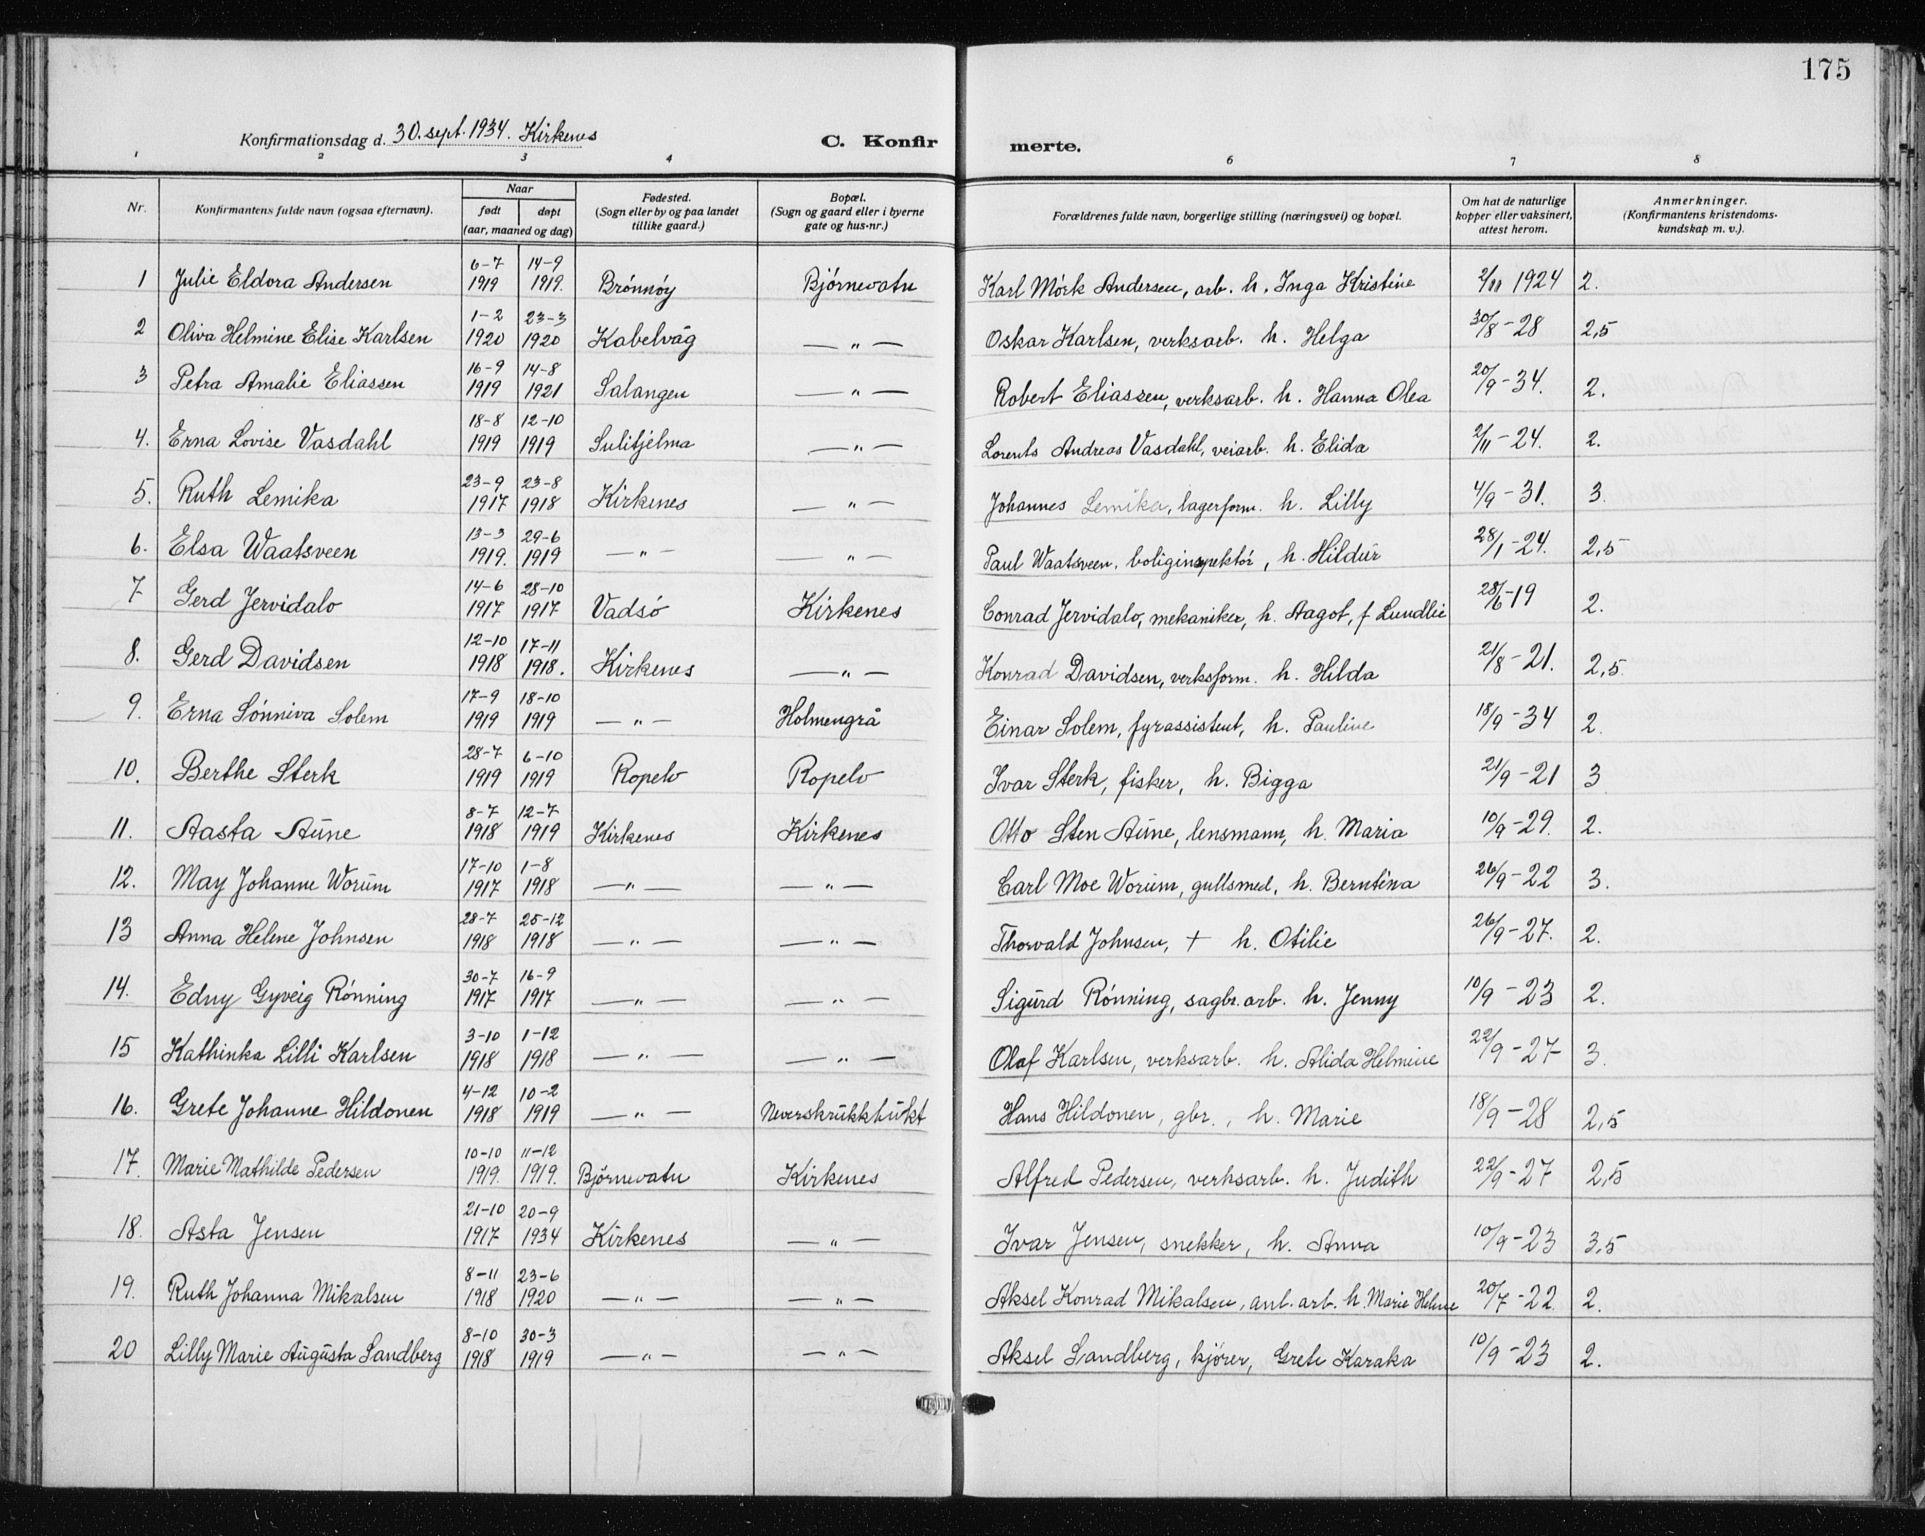 175
Konfirmationsdag d. 30. sept. 1934. Kirkenes C. Konfir merte.
1 2 3 4 6 7 8
Nr. Konfirmantens fulde navn (ogsaa efternavn). Naar født døpt (aar, maaned og dag) Fødested. (Sogn eller by og paa landet tillike gaard.) Bopæl. (Sogn og gaard eller i byerne gate og hus-nr.) Forældrenes fulde navn, borgerlige stilling (næringsvei) og bopæl. Om hat de naturlige kopper eller vaksinert, attest herom. Anmerkninger. (Konfirmantens kristendoms-kundskap m. v.).
1 Julie Eldora Andersen 6-7 1919 14-9 1919. Brønnøy Bjørnevatn Karl Mörk Andersen, arb. h. Inga Kristine 2/11 1924 2.
2 Oliva Helmine Elise Karlsen 1-2 1920 23-3 1920 Kabelvåg — " — Oskar Karlsen, verksarb. h. Helga 30/8-28 2,5
3 Petra Amalie Eliassen 16-9 1919 14-8 1921 Salangen — " — Robert Eliassen, verksarb. h. Hanna Olea 20/9-34. 2.
4. Erna Lovise Vasdahl 18-8 1919 12-10 1919 Sulitjelma — " — Lorents Andreas Vasdahl, veiarb. h. Elida 2/11-24. 2.
5. Ruth Lemika 23-9 1917 23-8 1918 Kirkenes — " — Johannes Lemika, lagerform. h. Lilly 4/9-31. 3.
6. Elsa Waatsveen 13-3 1919. 29-6 1919 — " — — " — Paul Waatsveen, boliginspektör, h. Hildur 28/1-24. 2,5
7 Gerd Jervidalo 14-6 1917 28-10 1917 Vadsö Kirkenes Conrad Jervidalo, mekaniker, h. Aagot, f Lundlie 28/6-19 2.
8. Gerd Davidsen 12-10 1918 17-11 1918. Kirkenes — " — Konrad Davidsen, verksform. h. Hilda 21/8-21. 2,5.
9. Erna Sönniva Solem 17-9 1919 18-10 1919 — " — Holmengrå Einar Solem, fyrassistent, h. Pauline 18/9-34 2.
10. Berthe Sterk 28-7 1919 6-10 1919 Ropelv Ropelv Ivar Sterk, fisker, h. Bigga 21/9-21 3
11. Aasta Aune 8-7 1918 12-7 1919 Kirkenes Kirkenes Otto Sten Aune, lensmann, h. Maria 10/9-29. 2.
12. May Johanne Worum 17-10 1917 1-8 1918 — " — — " — Carl Moe Worum, gullsmed, h. Berntina 26/9-22 3.
13 Anna Helene Johnsen 28-7 1918 25-12 1918 — " — — " — Thorvald Johnsen, + h. Otilie 26/9-27. 2.
14. Edny Gyveig Rönning 30-7 1917 16-9 1917 — " — — " — Sigurd Rönning, sagbr.arb. h. Jenny 10/9-23 2.
15 Kathinka Lilli Karlsen 3-10 1918 1-12 1918 — " — — " — Olaf Karlsen, verksarb. h. Alida Helmine 22/9-27 3.
16. Grete Johanne Hildonen 4-12 1918 10-2 1919 — " — Neverskrukkbukt Hans Hildonen, gbr., h. Marie 18/9-28 2,5
17. Marie Mathilde Pedersen 10-10 1919. 11-12 1919. Bjørnevatn Kirkenes Alfred Pedersen, verksarb. h. Judith 22/9-27 2,5
18. Asta Jensen 21-10 1917 20-9 1934 Kirkenes — " — Ivar Jensen, snekker, h. Anna 10/9-23 3,5
19. Ruth Johanna Mikalsen 8-11 1918 23-6 1920 — " — — " — Aksel Konrad Mikalsen, anl. arb. h. Marie Helene 20/7-22. 2.
20 Lilly Marie Augusta Sandberg 8-10 1918 30-3 1919 — " — — " — Aksel Sandberg, kjörer, Grete Karaka 10/9-23 2.